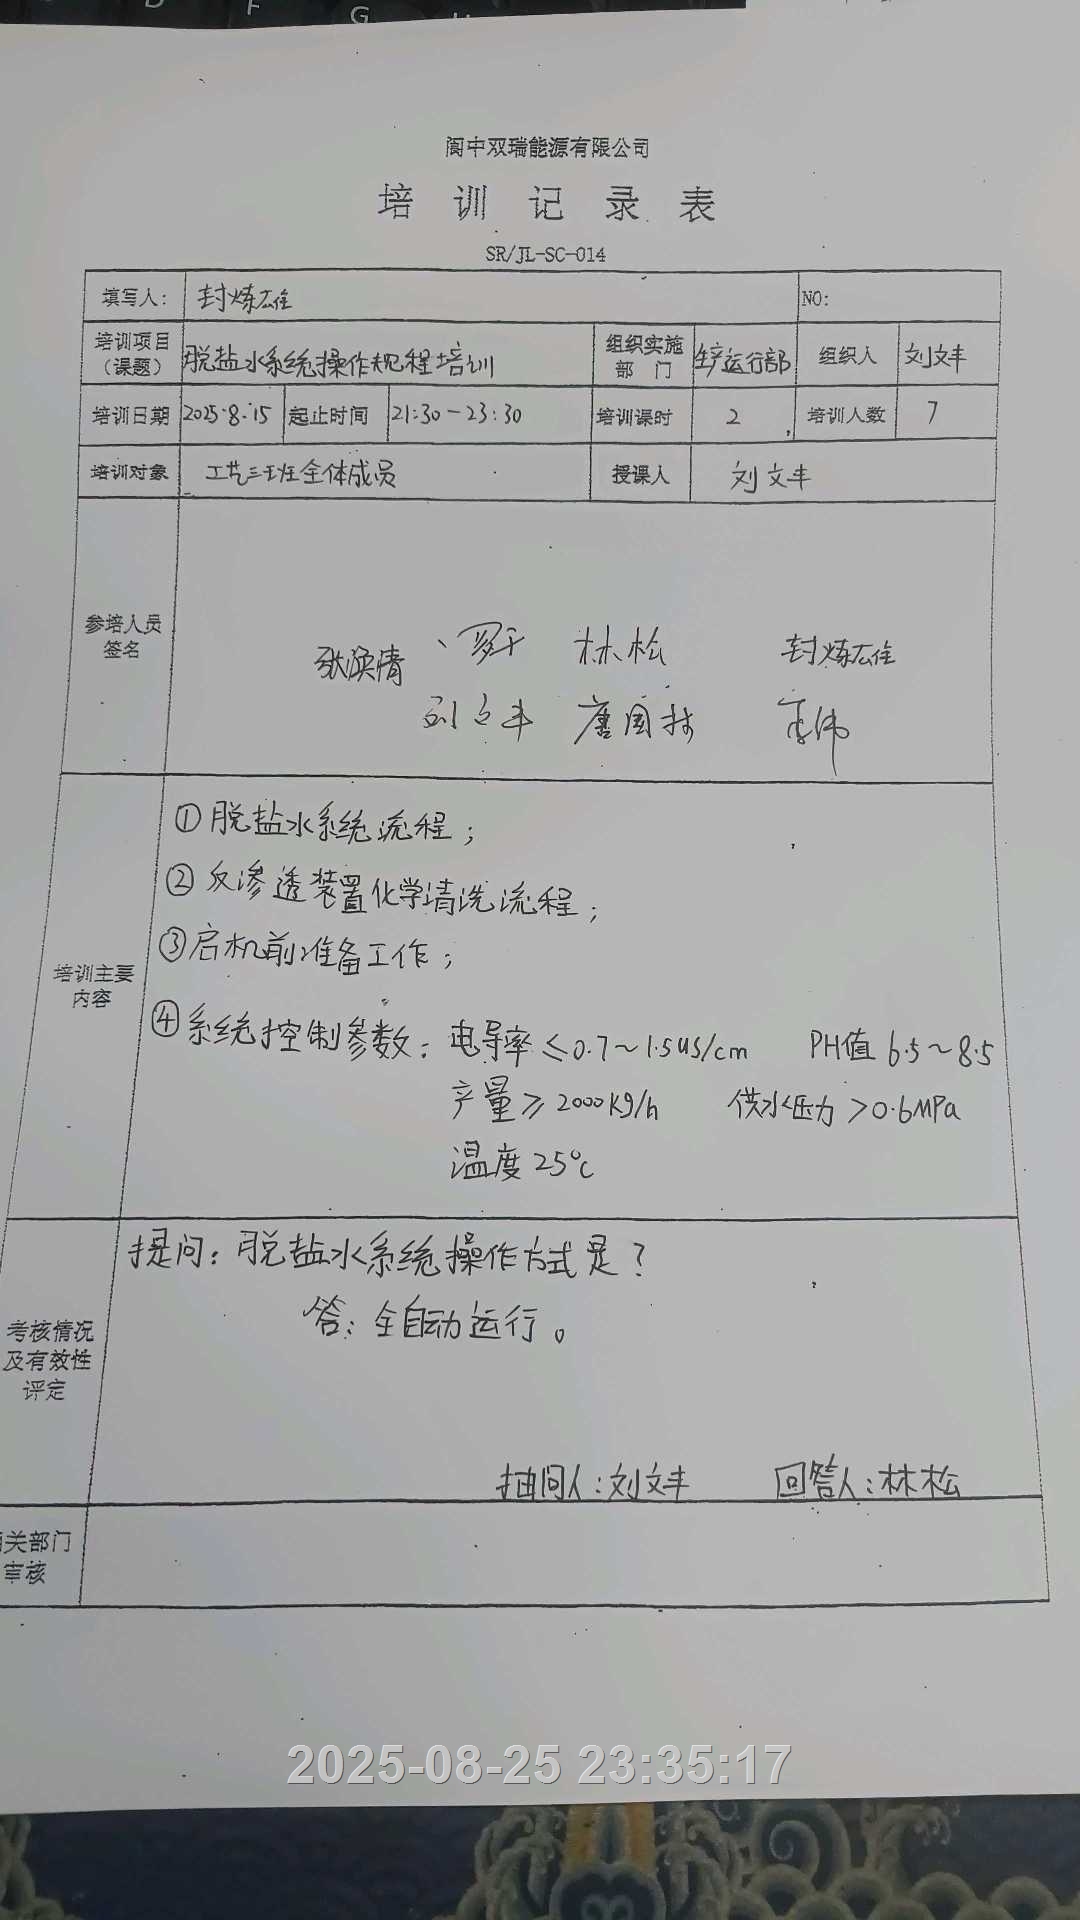 D F G
阆中双瑞能源有限公司
培训记录表
SR/JL-SC-014
填写人: 封炼雄 NO:
培训项目（课题） 脱盐水系统操作规程培训 组织实施部门 生产运行部 组织人 刘文丰
培训日期 2025.8.15 起止时间 21:30-23:30 培训课时 2 培训人数 7
培训对象 工艺三班全体成员 授课人 刘文丰
参培人员签名
张涣清 罗干 林松 封炼雄
刘文丰 唐国 李伟
培训主要内容
①脱盐水系统流程；
②反渗透装置化学清洗流程；
③启机前准备工作；
④系统控制参数：电导率≤0.7~1.5us/cm PH值6.5~8.5
产量≥2000Kg/h 供水压力>0.6MPa
温度25℃
考核情况及有效性评定
提问：脱盐水系统操作方式是？
答：全自动运行。
抽问人：刘文丰 回答人：林松
关部门
审核
2025-08-25 23:35:17